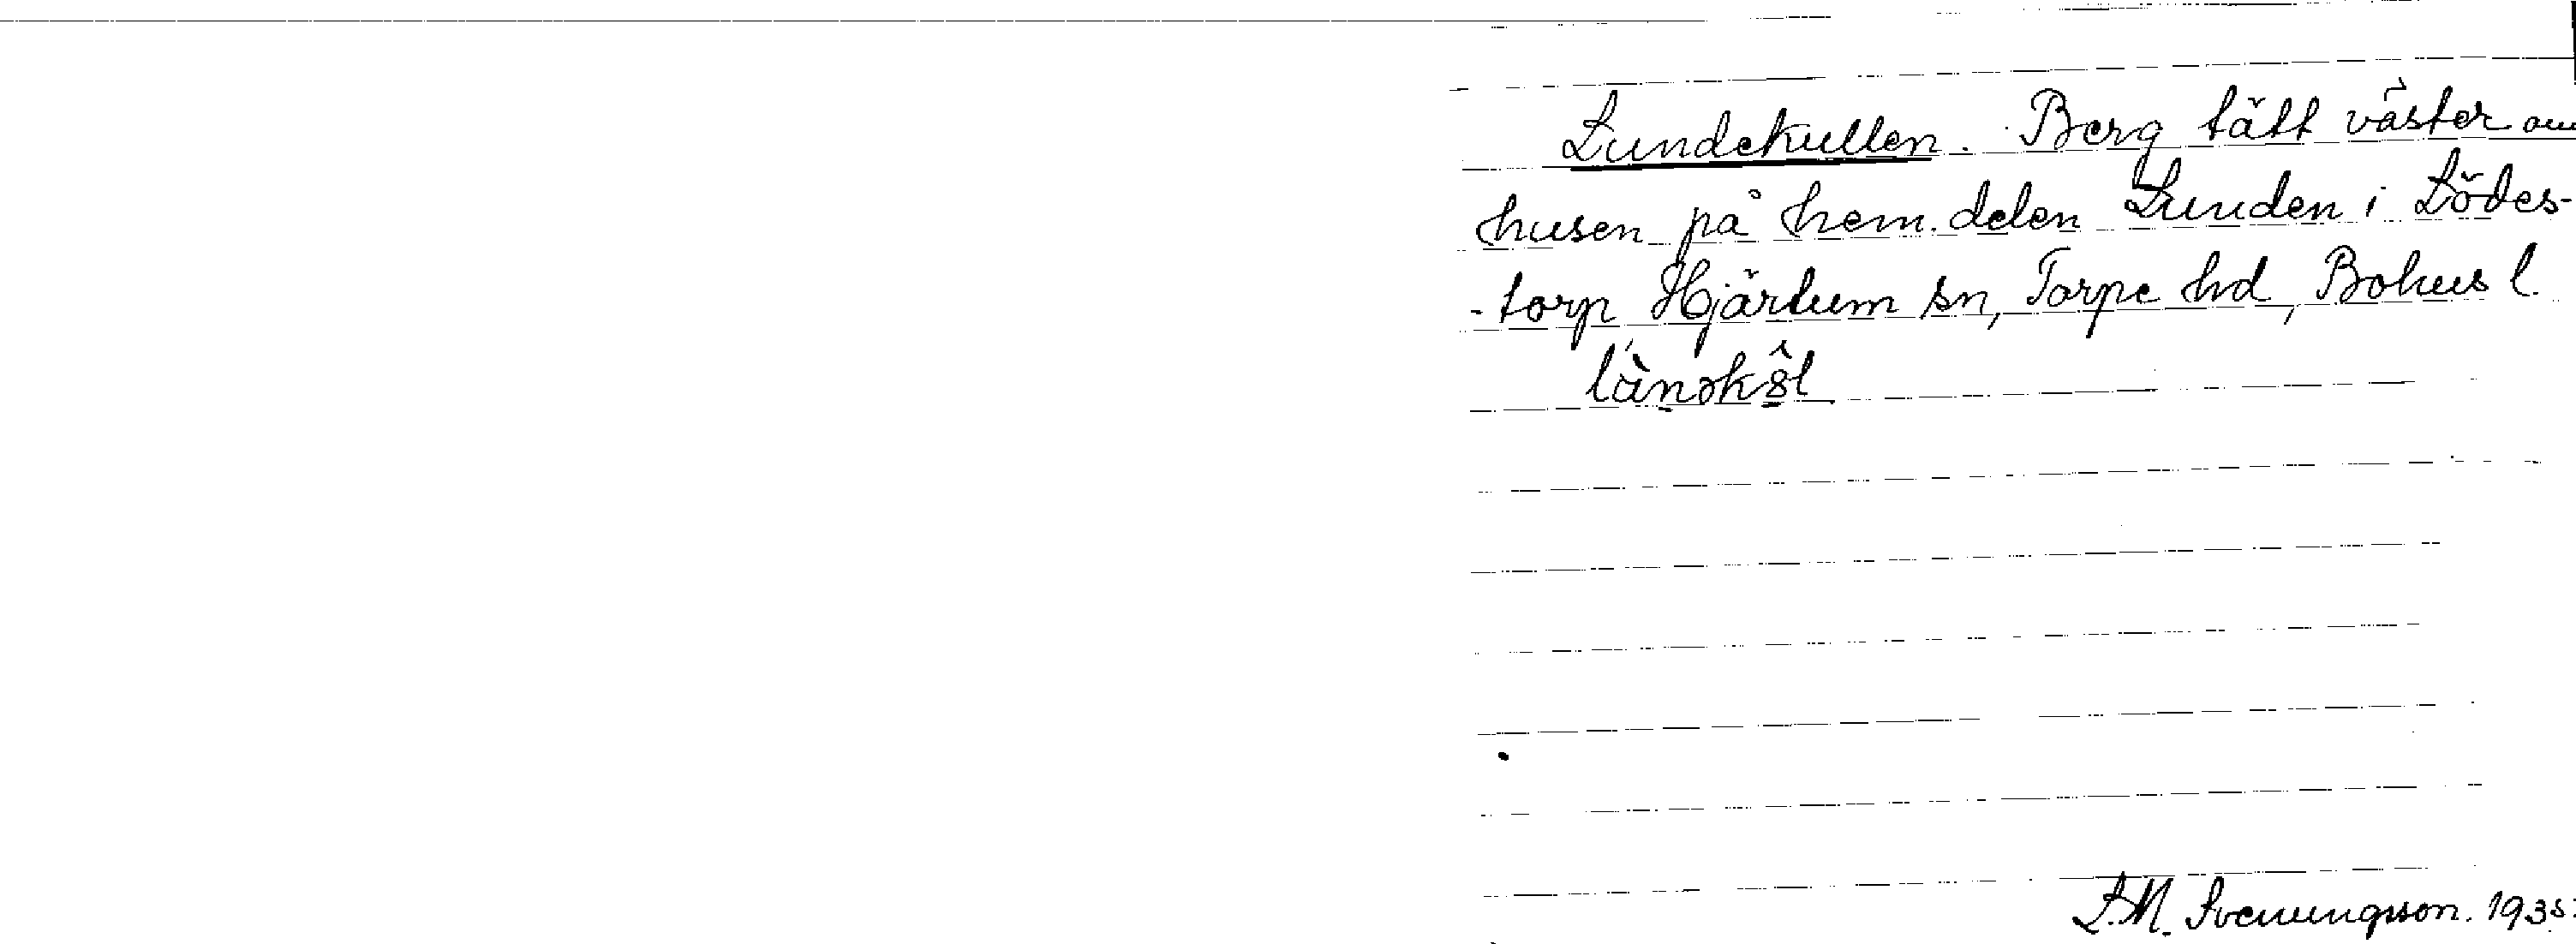 Lundekullen. Berg tätt väster om
husen på hem. delen Lunden i Lödes-
-torp Hjärtum sn, Torpe hd, Bohus l.
S.M. Svenungsson. 1935.